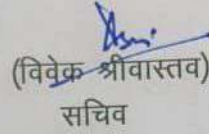 (विवेक श्रीवास्तव)
सचिव